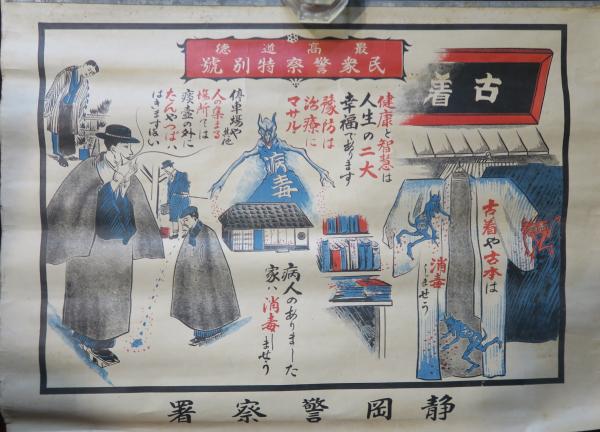 最高道徳
民衆警察特別號
古着
健康と智慧は
人生の二大
幸福であります
豫防は
治療に
マサル
病毒
停車場や其他
人の集まる
場所では
痰壺の外に
たんやつばハ
はきますまい
古着や古本は
消毒しませう
病人のありました
家ハ消毒しませう
静岡警察署